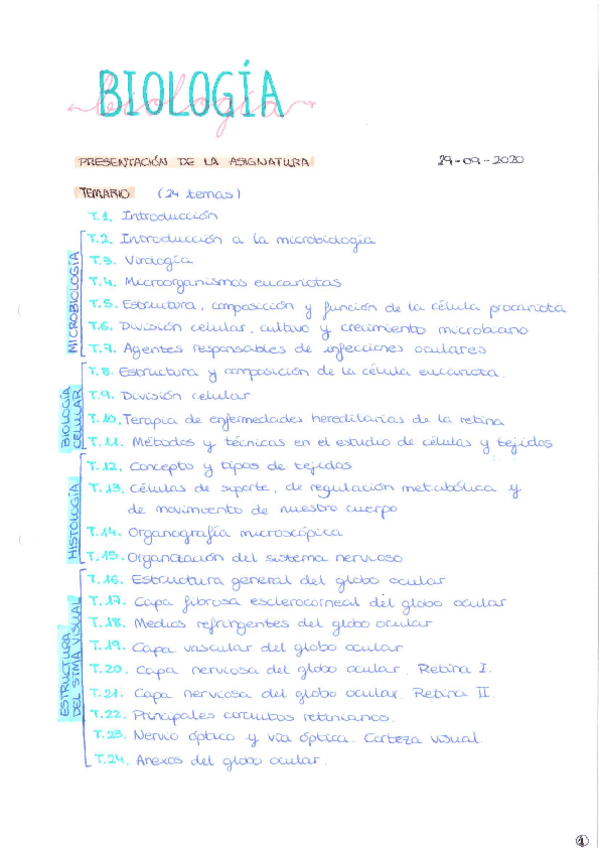 BIOLOGÍA
biología
PRESENTACIÓN DE LA ASIGNATURA 29-09-2020
TEMARIO (24 temas)
T.1. Introducción
MICROBIOLOGÍA
T.2. Introducción a la microbiología
T.3. Virología
T.4. Microorganismos eucariotas
T.5. Estructura, composición y función de la célula procariota
T.6. División celular, cultivo y crecimiento microbiano
T.7. Agentes responsables de infecciones oculares
BIOLOGÍA CELULAR
T.8. Estructura y composición de la célula eucariota.
T.9. División celular
T.10. Terapia de enfermedades hereditarias de la retina
T.11. Métodos y técnicas en el estudio de células y tejidos
HISTOLOGÍA
T.12. Concepto y tipos de tejidos
T.13. Células de soporte, de regulación metabólica y
de movimiento de nuestro cuerpo
T.14. Organografía microscópica
T.15. Organización del sistema nervioso
ESTRUCTURA
DEL STMA VISUAL
T.16. Estructura general del globo ocular
T.17. Capa fibrosa esclerocorneal del globo ocular
T.18. Medios refringentes del globo ocular
T.19. Capa vascular del globo ocular
T.20. Capa nerviosa del globo ocular. Retina I.
T.21. Capa nerviosa del globo ocular. Retina II.
T.22. Principales circuitos retinianos.
T.23. Nervio óptico y vía óptica. Corteza visual.
T.24. Anexos del globo ocular.
1